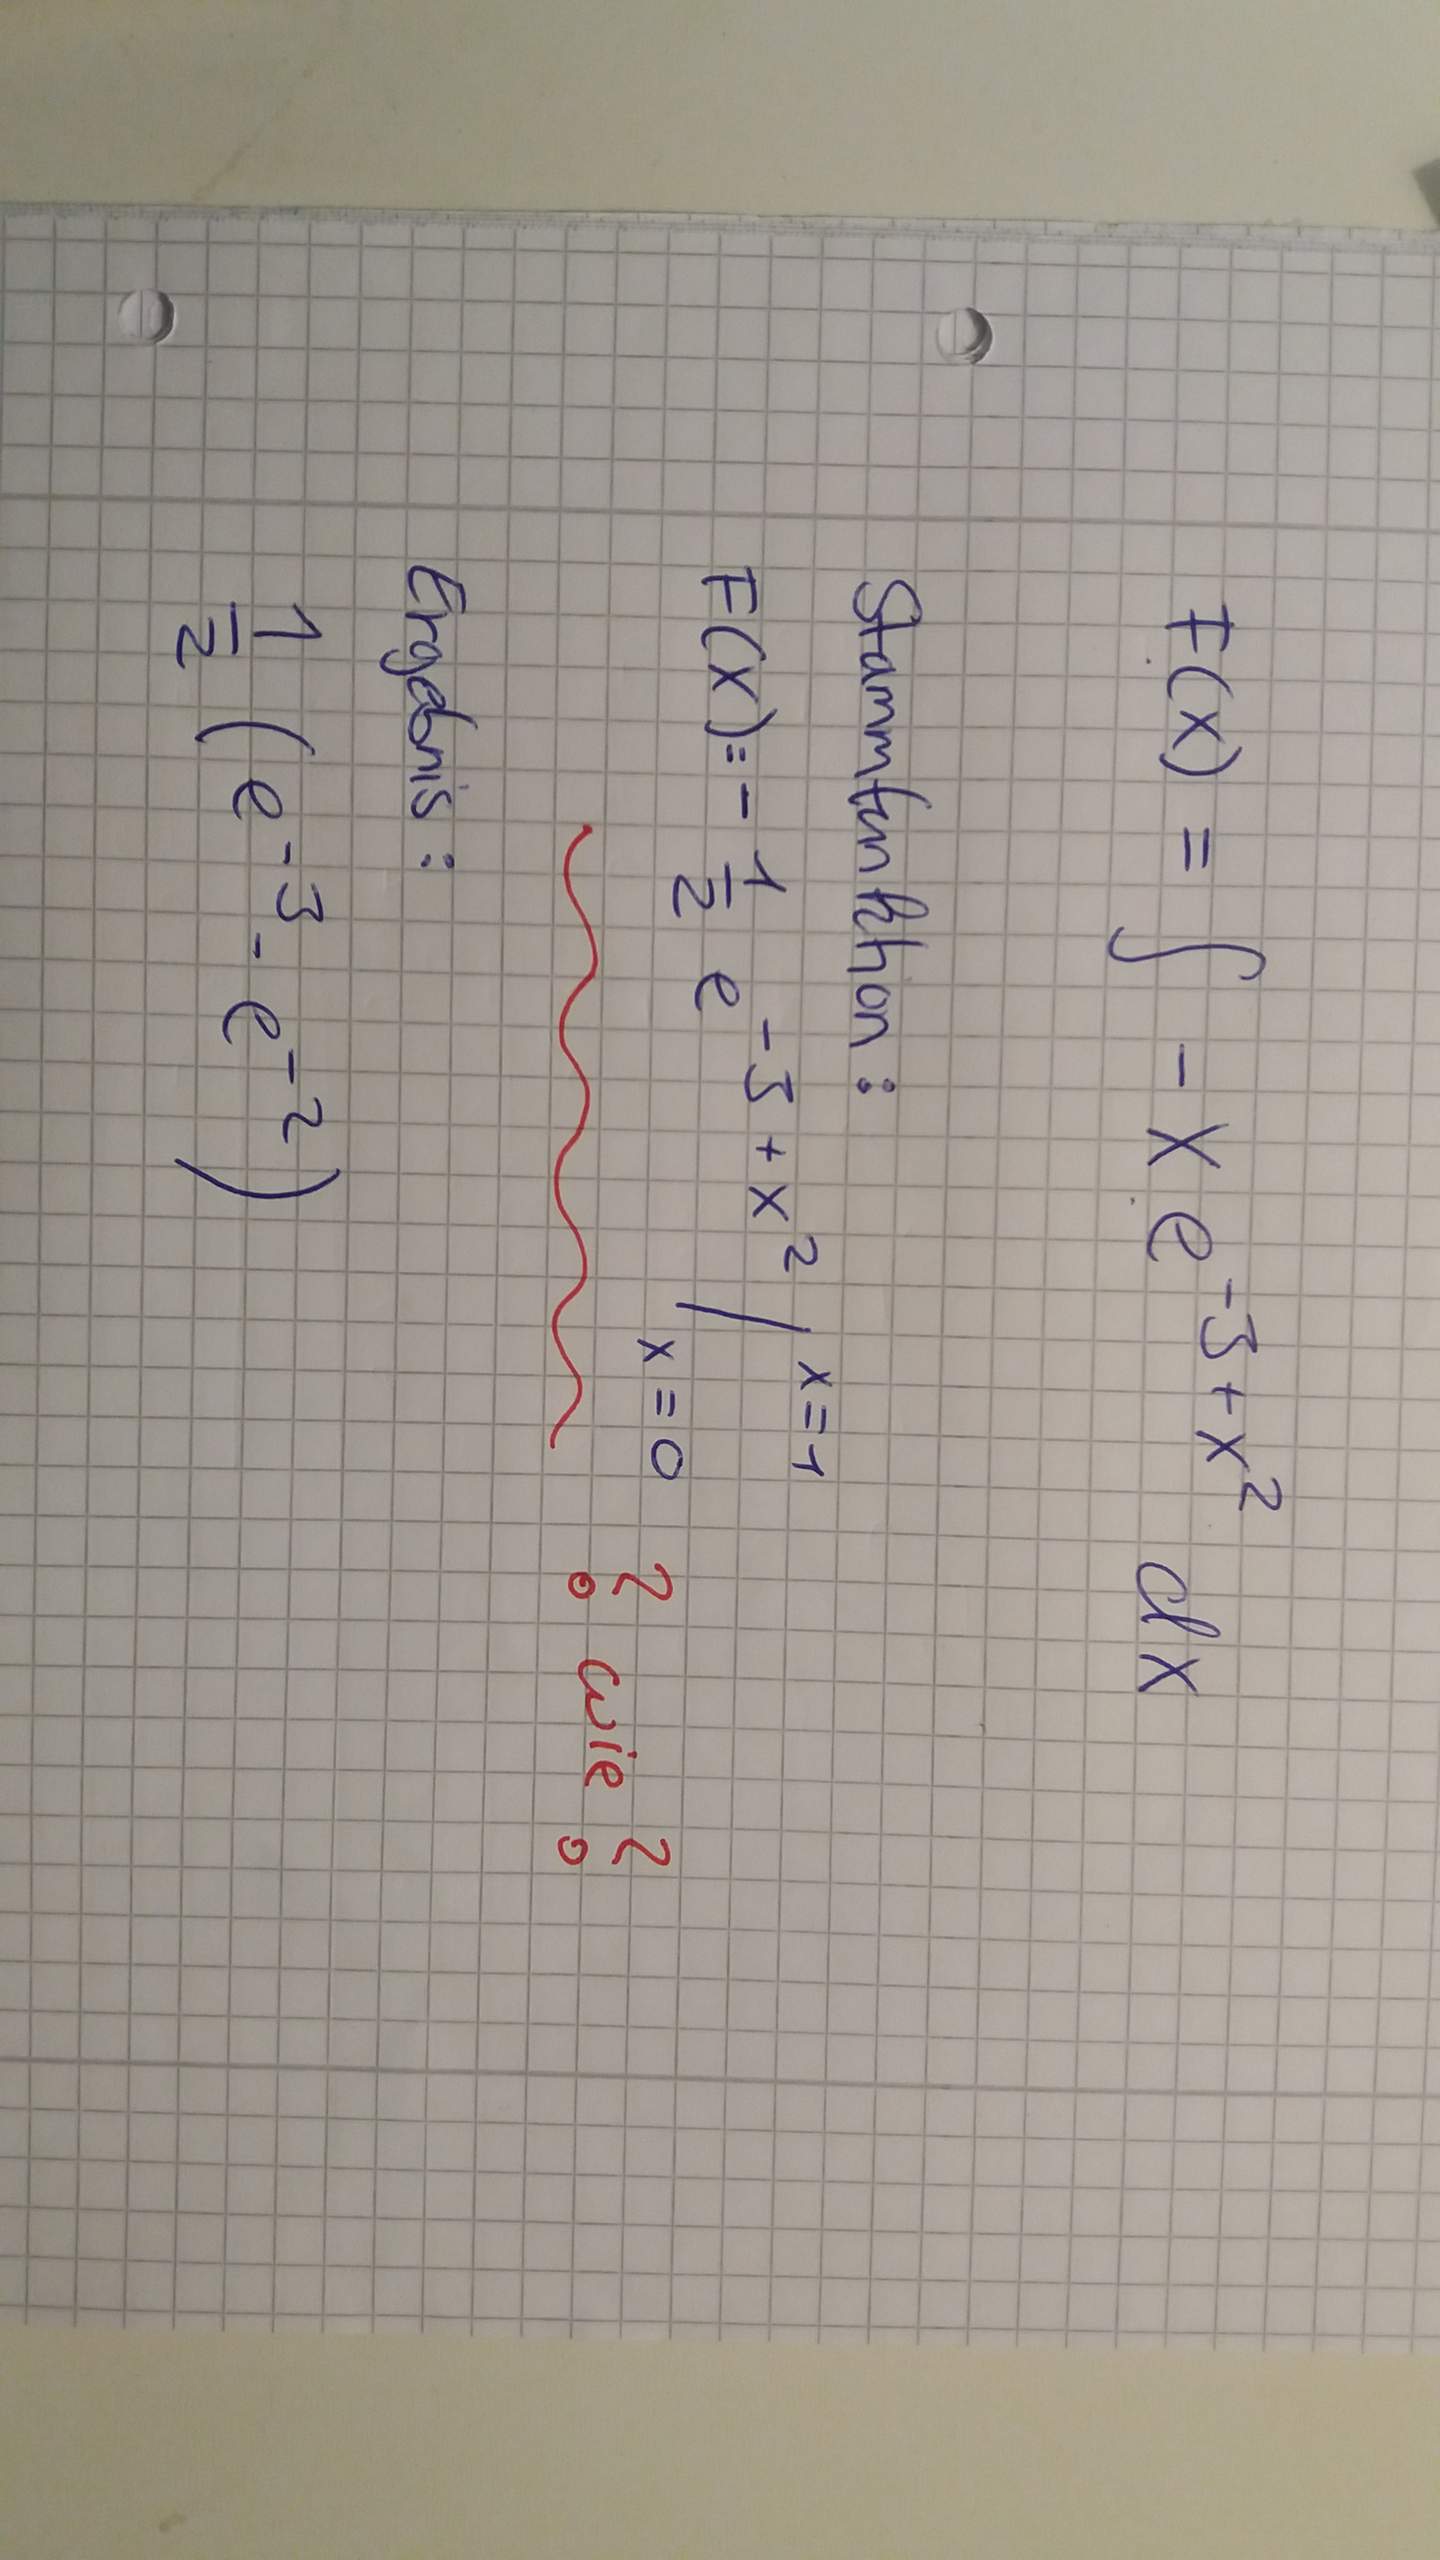 F(x) = ∫ -x e^{-3+x^2} dx
Stammfunktion:
F(x) = - 1/2 e^{-3+x^2} |_{x=0}^{x=1}
? wie ?
Ergebnis:
1/2 (e^{-3} - e^{-2})